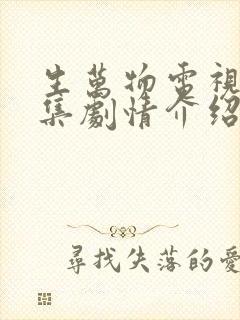 生萬物電視
集劇情介紹
尋找失落的愛